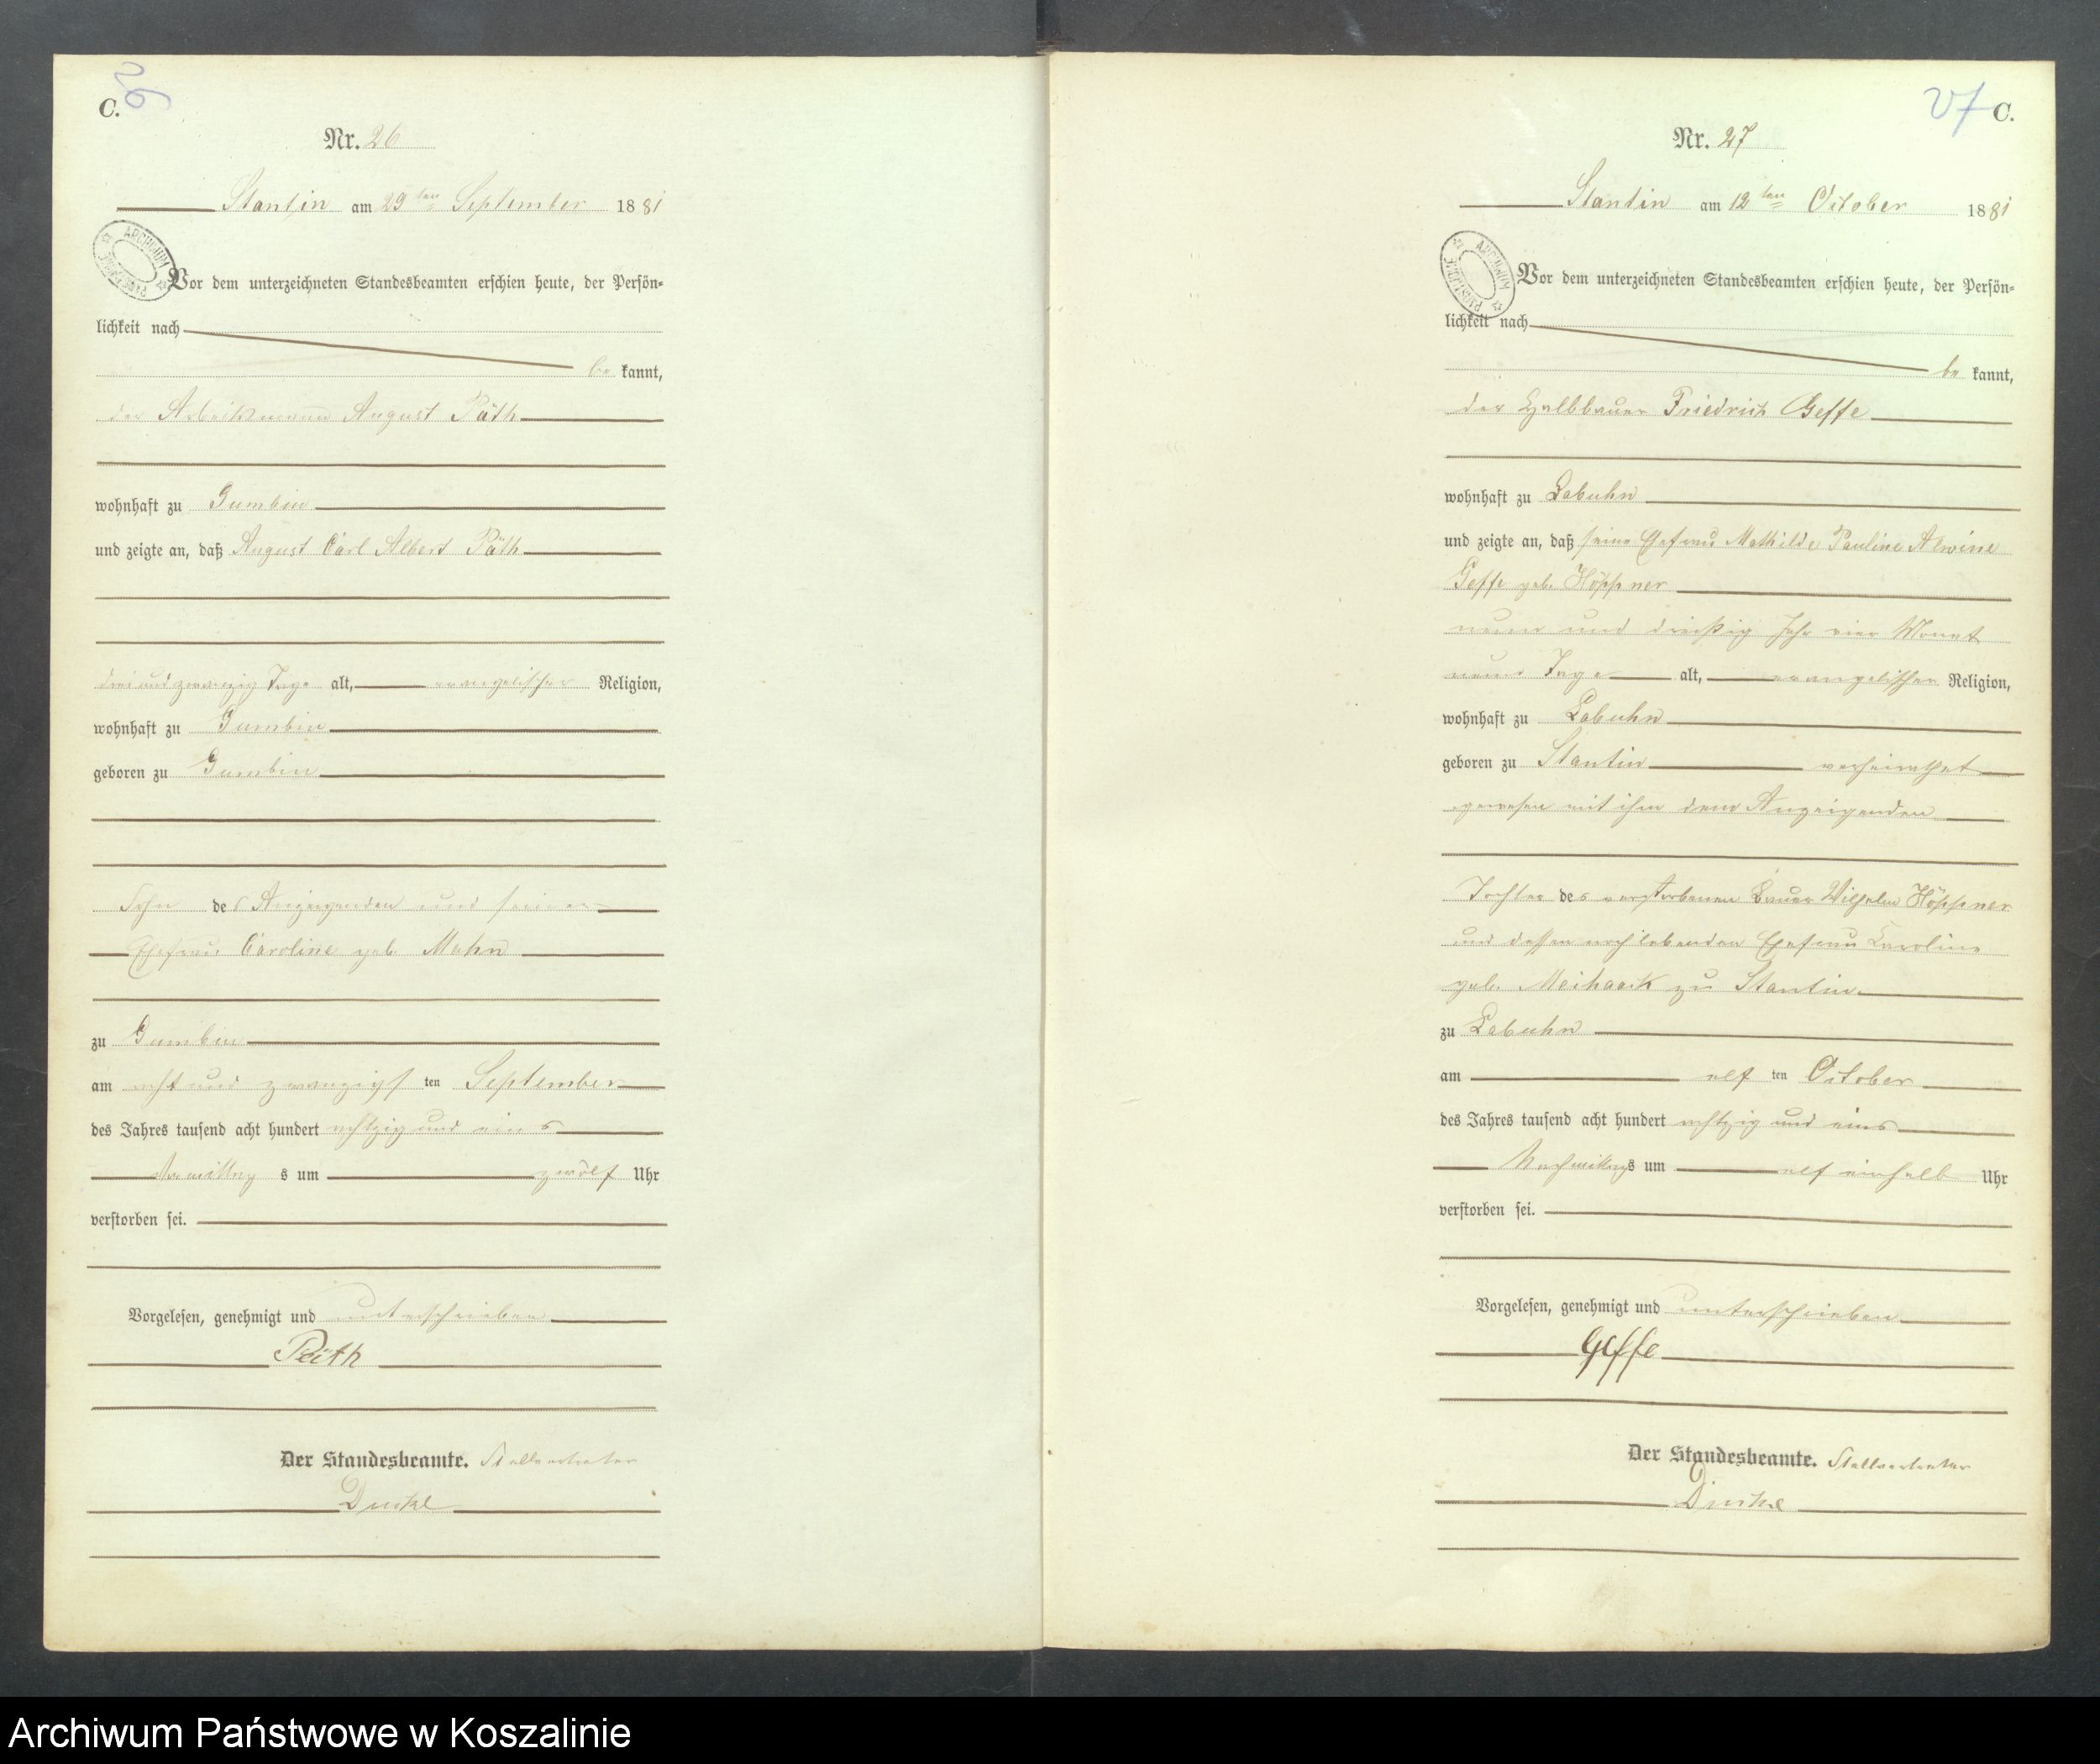 C.
Nr. 26
Stantin am 29ten September 1881
Vor dem unterzeichneten Standesbeamten erschien heute, der Persön-
lichkeit nach
be kannt,
der Arbeitsmann August Päth
wohnhaft zu Gumbin
und zeigte an, daß August Carl Albert Päth
drei und zwanzig Tage alt, evangelischer Religion,
wohnhaft zu Gumbin
geboren zu Gumbin
Sohn des Anzeigenden und seiner
Ehefrau Caroline geb. Mahn
zu Gumbin
am acht und zwanzigsten September
des Jahres tausend acht hundert achtzig und eins
Vormittags um zwölf Uhr
verstorben sei.
Vorgelesen, genehmigt und unterschrieben
Päth
Der Standesbeamte. Stellvertreter
27 C.
Nr. 27
Stantin am 12ten October 1881
Vor dem unterzeichneten Standesbeamten erschien heute, der Persön-
lichkeit nach
be kannt,
der Halbbauer Friedrich Geffe
wohnhaft zu Labuhn
und zeigte an, daß seine Ehefrau Mathilde Pauline Alwine
Geffe geb. Höppner
neun und dreißig Jahr vier Monat
neun Tage alt, evangelischer Religion,
wohnhaft zu Labuhn
geboren zu Stantin verheirathet
gewesen mit ihm dem Anzeigenden
Tochter des verstorbenen Bauer Wilhelm Höppner
und dessen noch lebenden Ehefrau Karoline
geb. zu Stantin
zu Labuhn
am elf ten October
des Jahres tausend acht hundert achtzig und eins
Nachmittags um elf einhalb Uhr
verstorben sei.
Vorgelesen, genehmigt und unterschrieben
Geffe
Der Standesbeamte. Stellvertreter
Archiwum Państwowe w Koszalinie